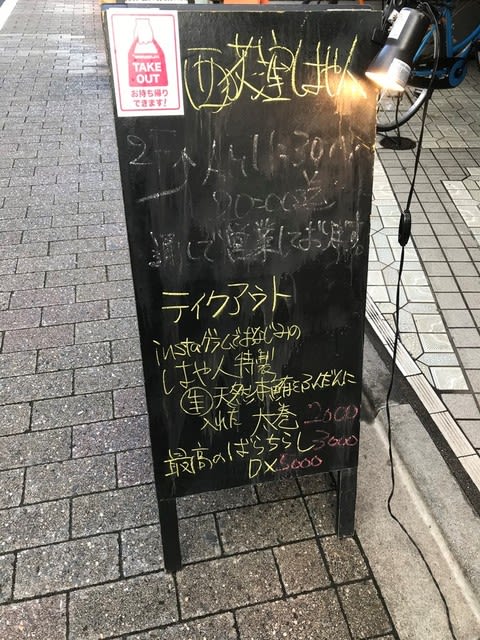 TAKE
OUT
お持ち帰り
できます!
西荻窪しはや人
2F AM11:30から
20:00まで
通しで営業しております
テイクアウト
instaグラムでおなじみの
しはや人特製
生 天然本鮪をふんだんに
入れた 太巻 2000
最高のばらちらし 3000
DX 5000